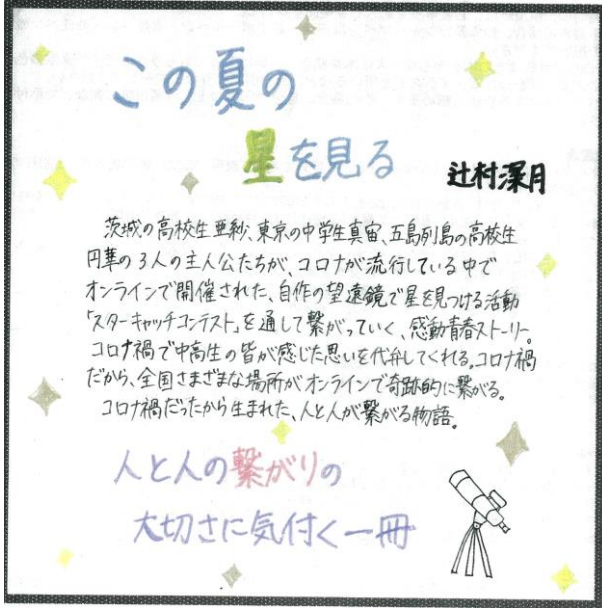 この夏の
星を見る
辻村深月
茨城の高校生亜紗、東京の中学生真宙、五島列島の高校生
円華の3人の主人公たちが、コロナが流行している中で
オンラインで開催された、自作の望遠鏡で星を見つける活動
「スターキャッチコンテスト」を通して繋がっていく、感動青春ストーリー。
コロナ禍で中高生の皆が感じた思いを代弁してくれる。コロナ禍
だから、全国さまざまな場所がオンラインで奇跡的に繋がる。
コロナ禍だったから生まれた、人と人が繋がる物語。
人と人の繋がりの
大切さに気付く一冊